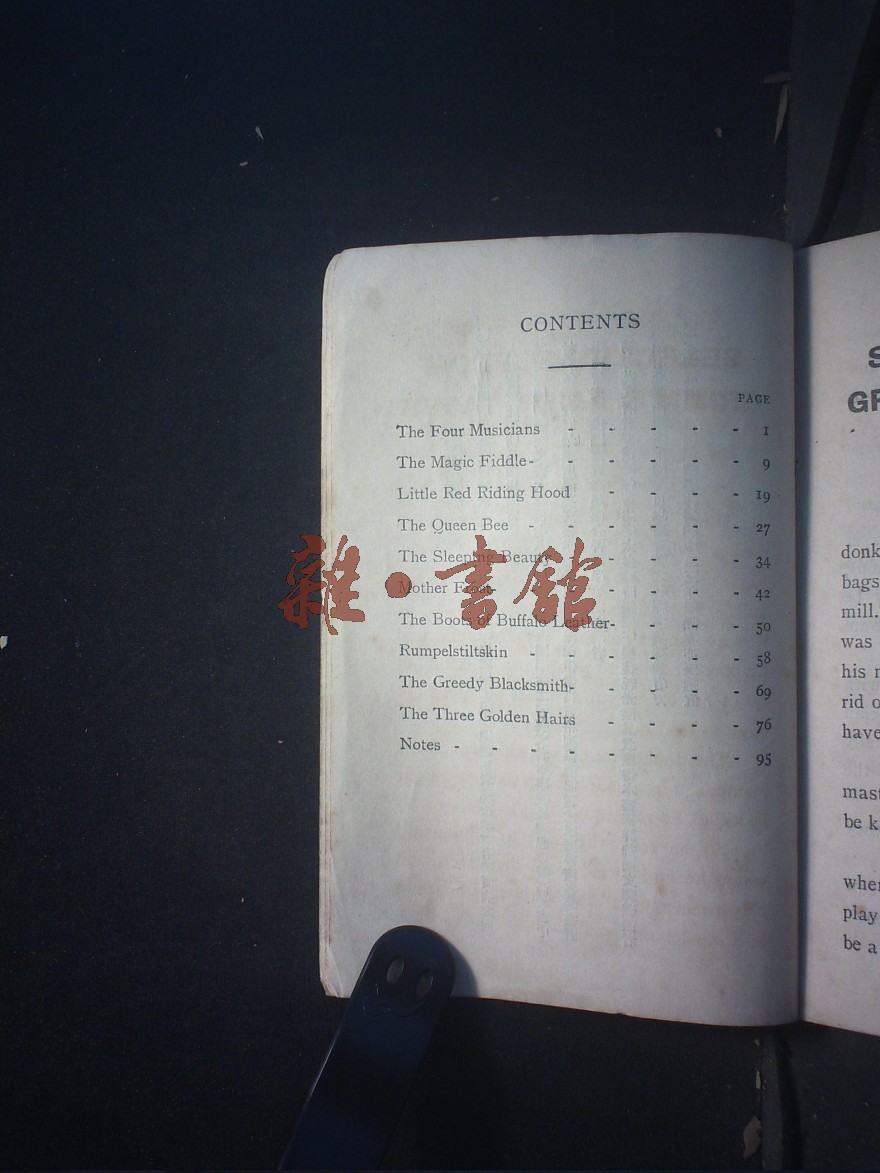 CONTENTS
PAGE
The Four Musicians - - - - - 1
The Magic Fiddle - - - - - - 9
Little Red Riding Hood - - - - 19
The Queen Bee - - - - - - 27
The Sleeping Beauty - - - - - 34
Mother Frost - - - - - 42
The Boots of Buffalo Leather - - - - 50
Rumpelstiltskin - - - - - - 58
The Greedy Blacksmith - - - - - 69
The Three Golden Hairs - - - - 76
Notes - - - - - - - - 95
雜·書館
S
GR
donk
bags
mill.
was
his
rid o
have
mast
be k
when
play
be a